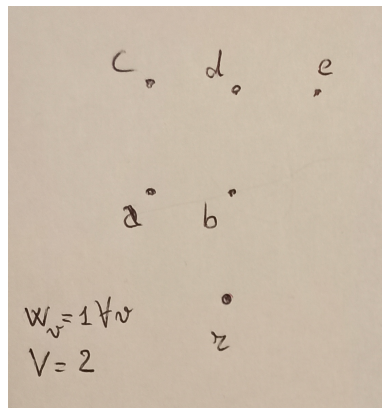 c d e
a b
W_v=1 ∀v
r
V=2